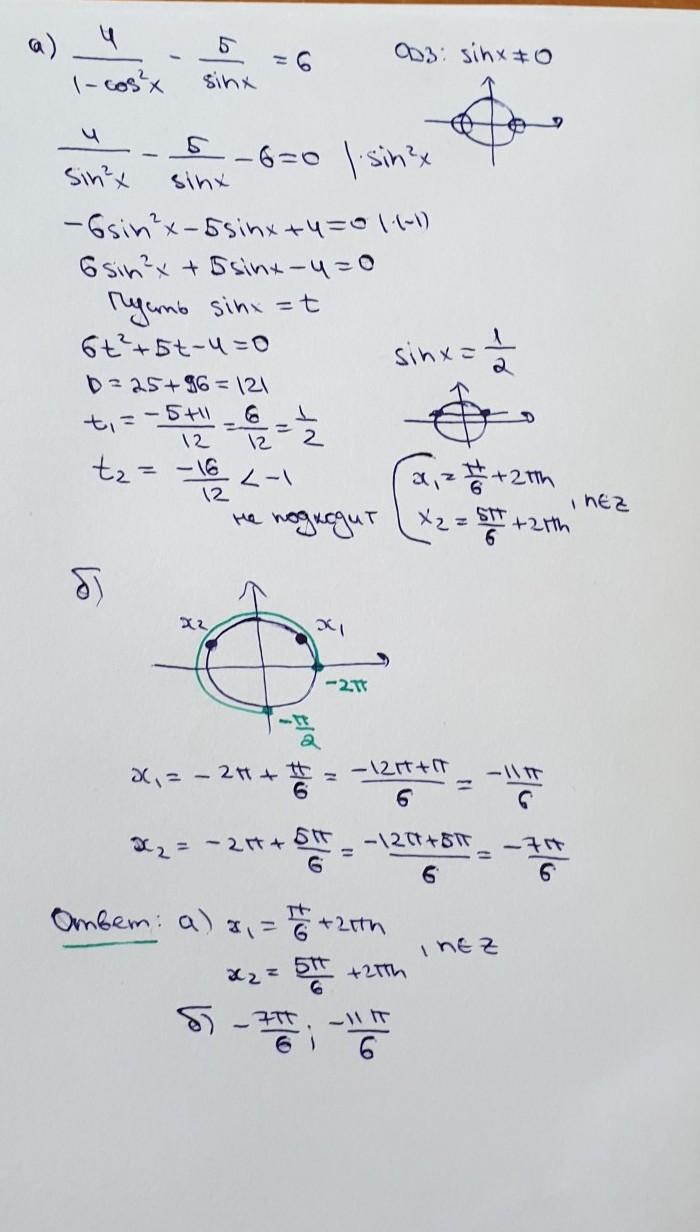 а) 4/(1-cos²x) - 5/sinx = 6
ОДЗ: sinx ≠ 0
4/sin²x - 5/sinx - 6 = 0 |·sin²x
-6sin²x - 5sinx + 4 = 0 |·(-1)
6sin²x + 5sinx - 4 = 0
Пусть sinx = t
6t² + 5t - 4 = 0
D = 25 + 96 = 121
t₁ = (-5+11)/12 = 6/12 = 1/2
t₂ = -16/12 < -1
не подходит
sinx = 1/2
x₁ = π/6 + 2πn
x₂ = 5π/6 + 2πn
, n∈Z
б)
x₂ x₁
-2π
-π/2
x₁ = -2π + π/6 = (-12π+π)/6 = -11π/6
x₂ = -2π + 5π/6 = (-12π+5π)/6 = -7π/6
Ответ: а) x₁ = π/6 + 2πn
x₂ = 5π/6 + 2πn
, n∈Z
б) -7π/6; -11π/6